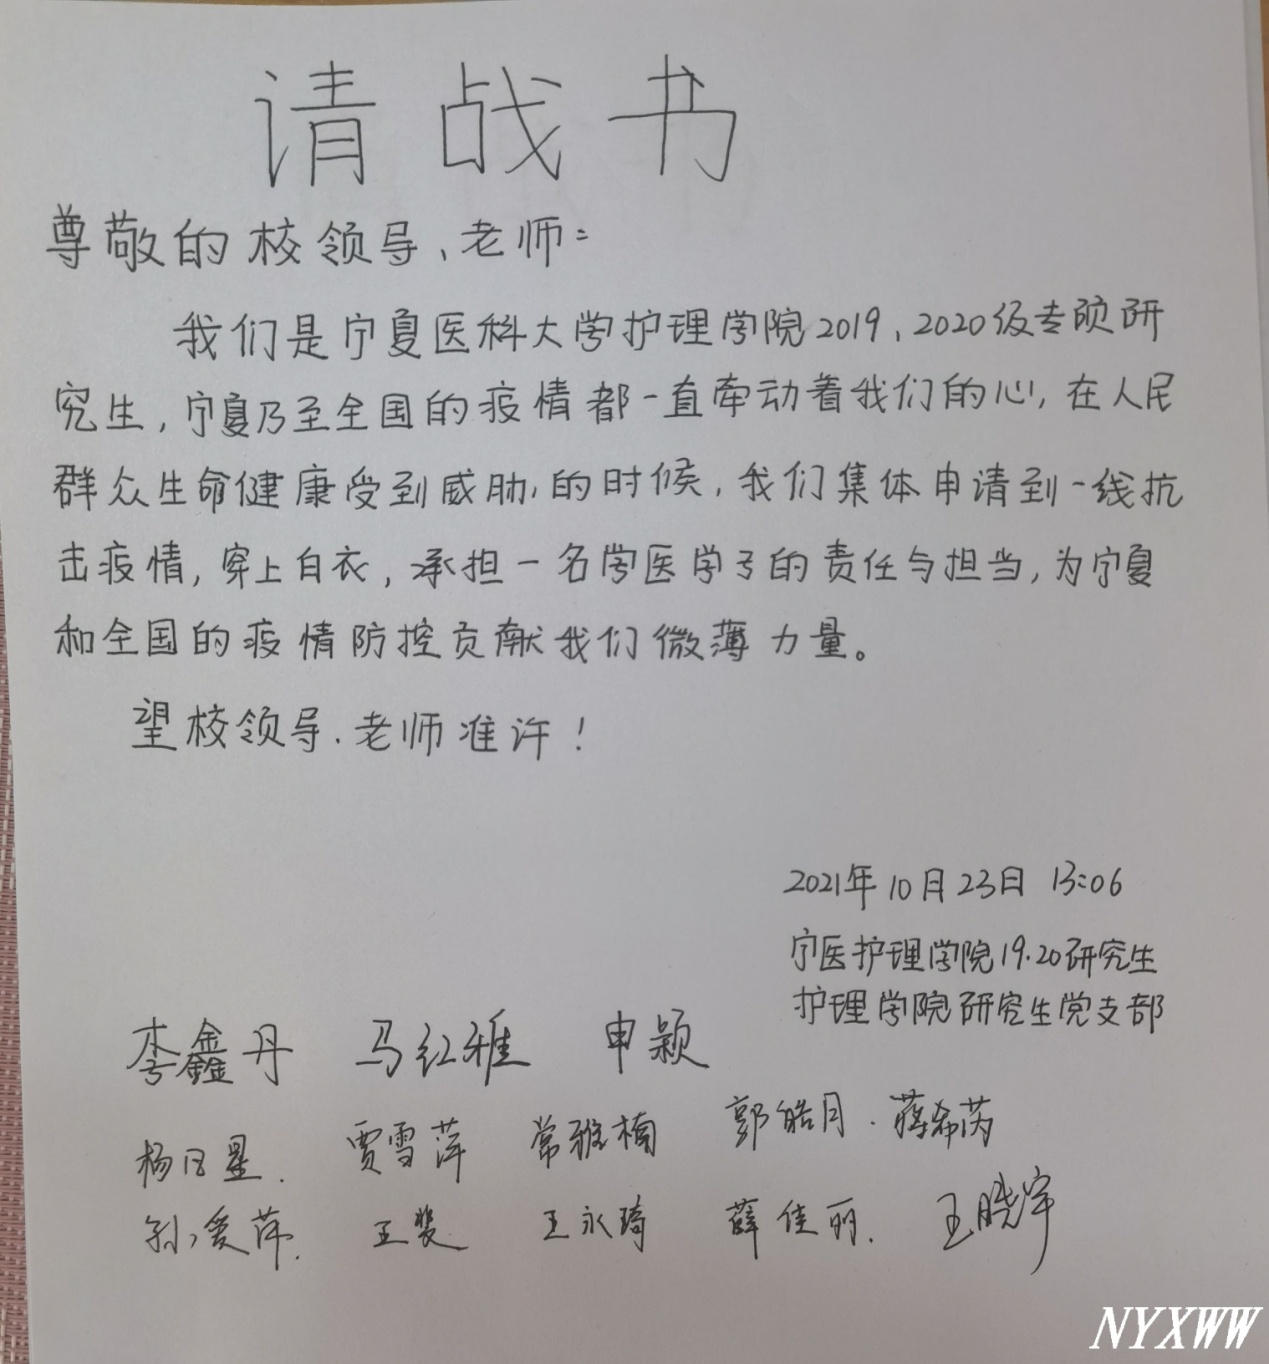 请战书
尊敬的校领导、老师：
我们是宁夏医科大学护理学院2019、2020级专硕研
究生，宁夏乃至全国的疫情都一直牵动着我们的心，在人民
群众生命健康受到威胁的时候，我们集体申请到一线抗
击疫情，穿上白衣，承担一名学医学子的责任与担当，为宁夏
和全国的疫情防控贡献我们微薄力量。
望校领导、老师准许！
2021年10月23日 13:06
宁医护理学院19.20研究生
护理学院研究生党支部
李鑫丹 马红雅 申颖
杨 星. 贾雪萍 常雅楠 郭皓月. 蒋希芮
孙爱萍. 王斐 王永琦 薛佳丽. 王晓宇
NYXWW